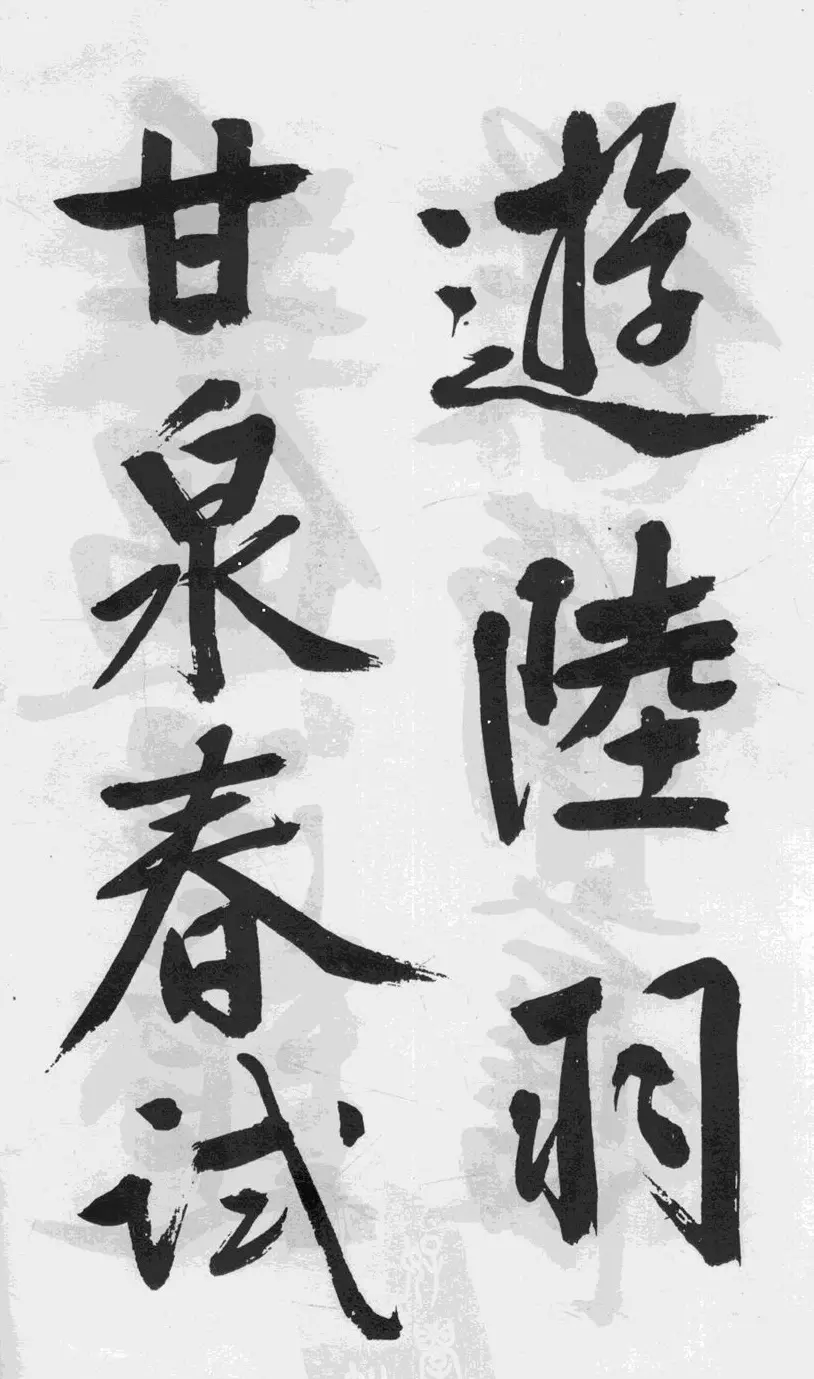 遊陸羽
甘泉春试